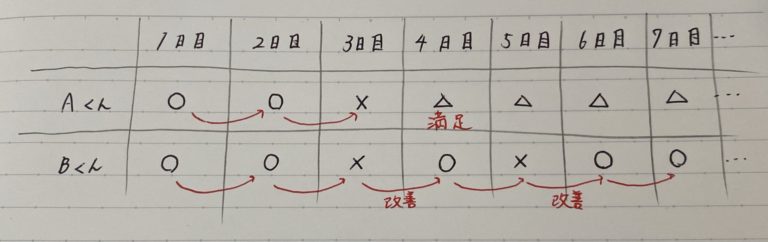 1日目 2日目 3日目 4日目 5日目 6日目 7日目 …
Aくん ○ ○ × △ △ △ △ …
満足
Bくん ○ ○ × ○ × ○ ○ …
改善 改善